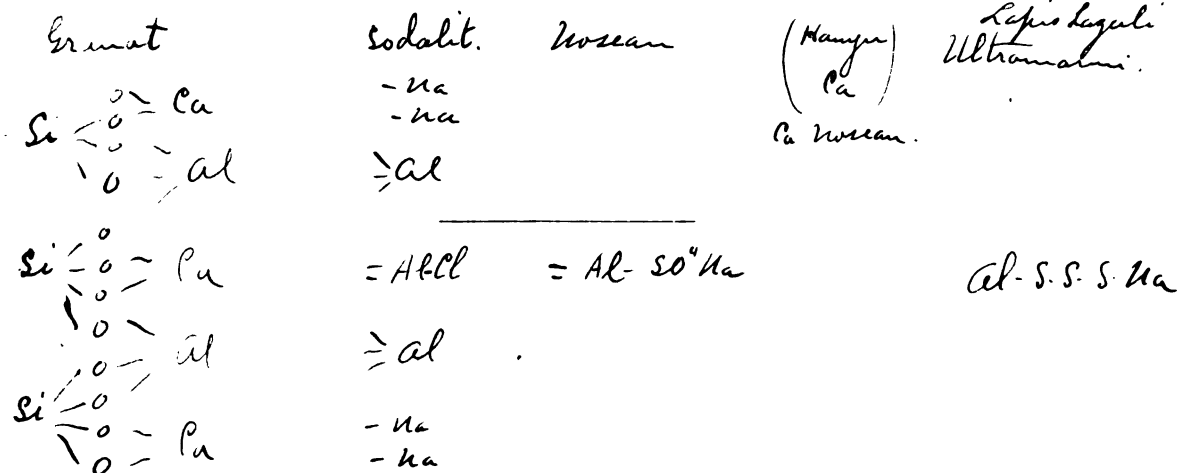 Granat Sodalit. Nosean (Hauyn Ca) Lapis Lazuli Ultramarin.
Ca Nosean.
O = Ca - Na
Si O - Na
O
O Al Al
Si O
O Ca = Al-Cl = Al- SO" Na Al-S.S.S.Na
O
O Al Al
O
Si O
O Ca - Na
O - Na